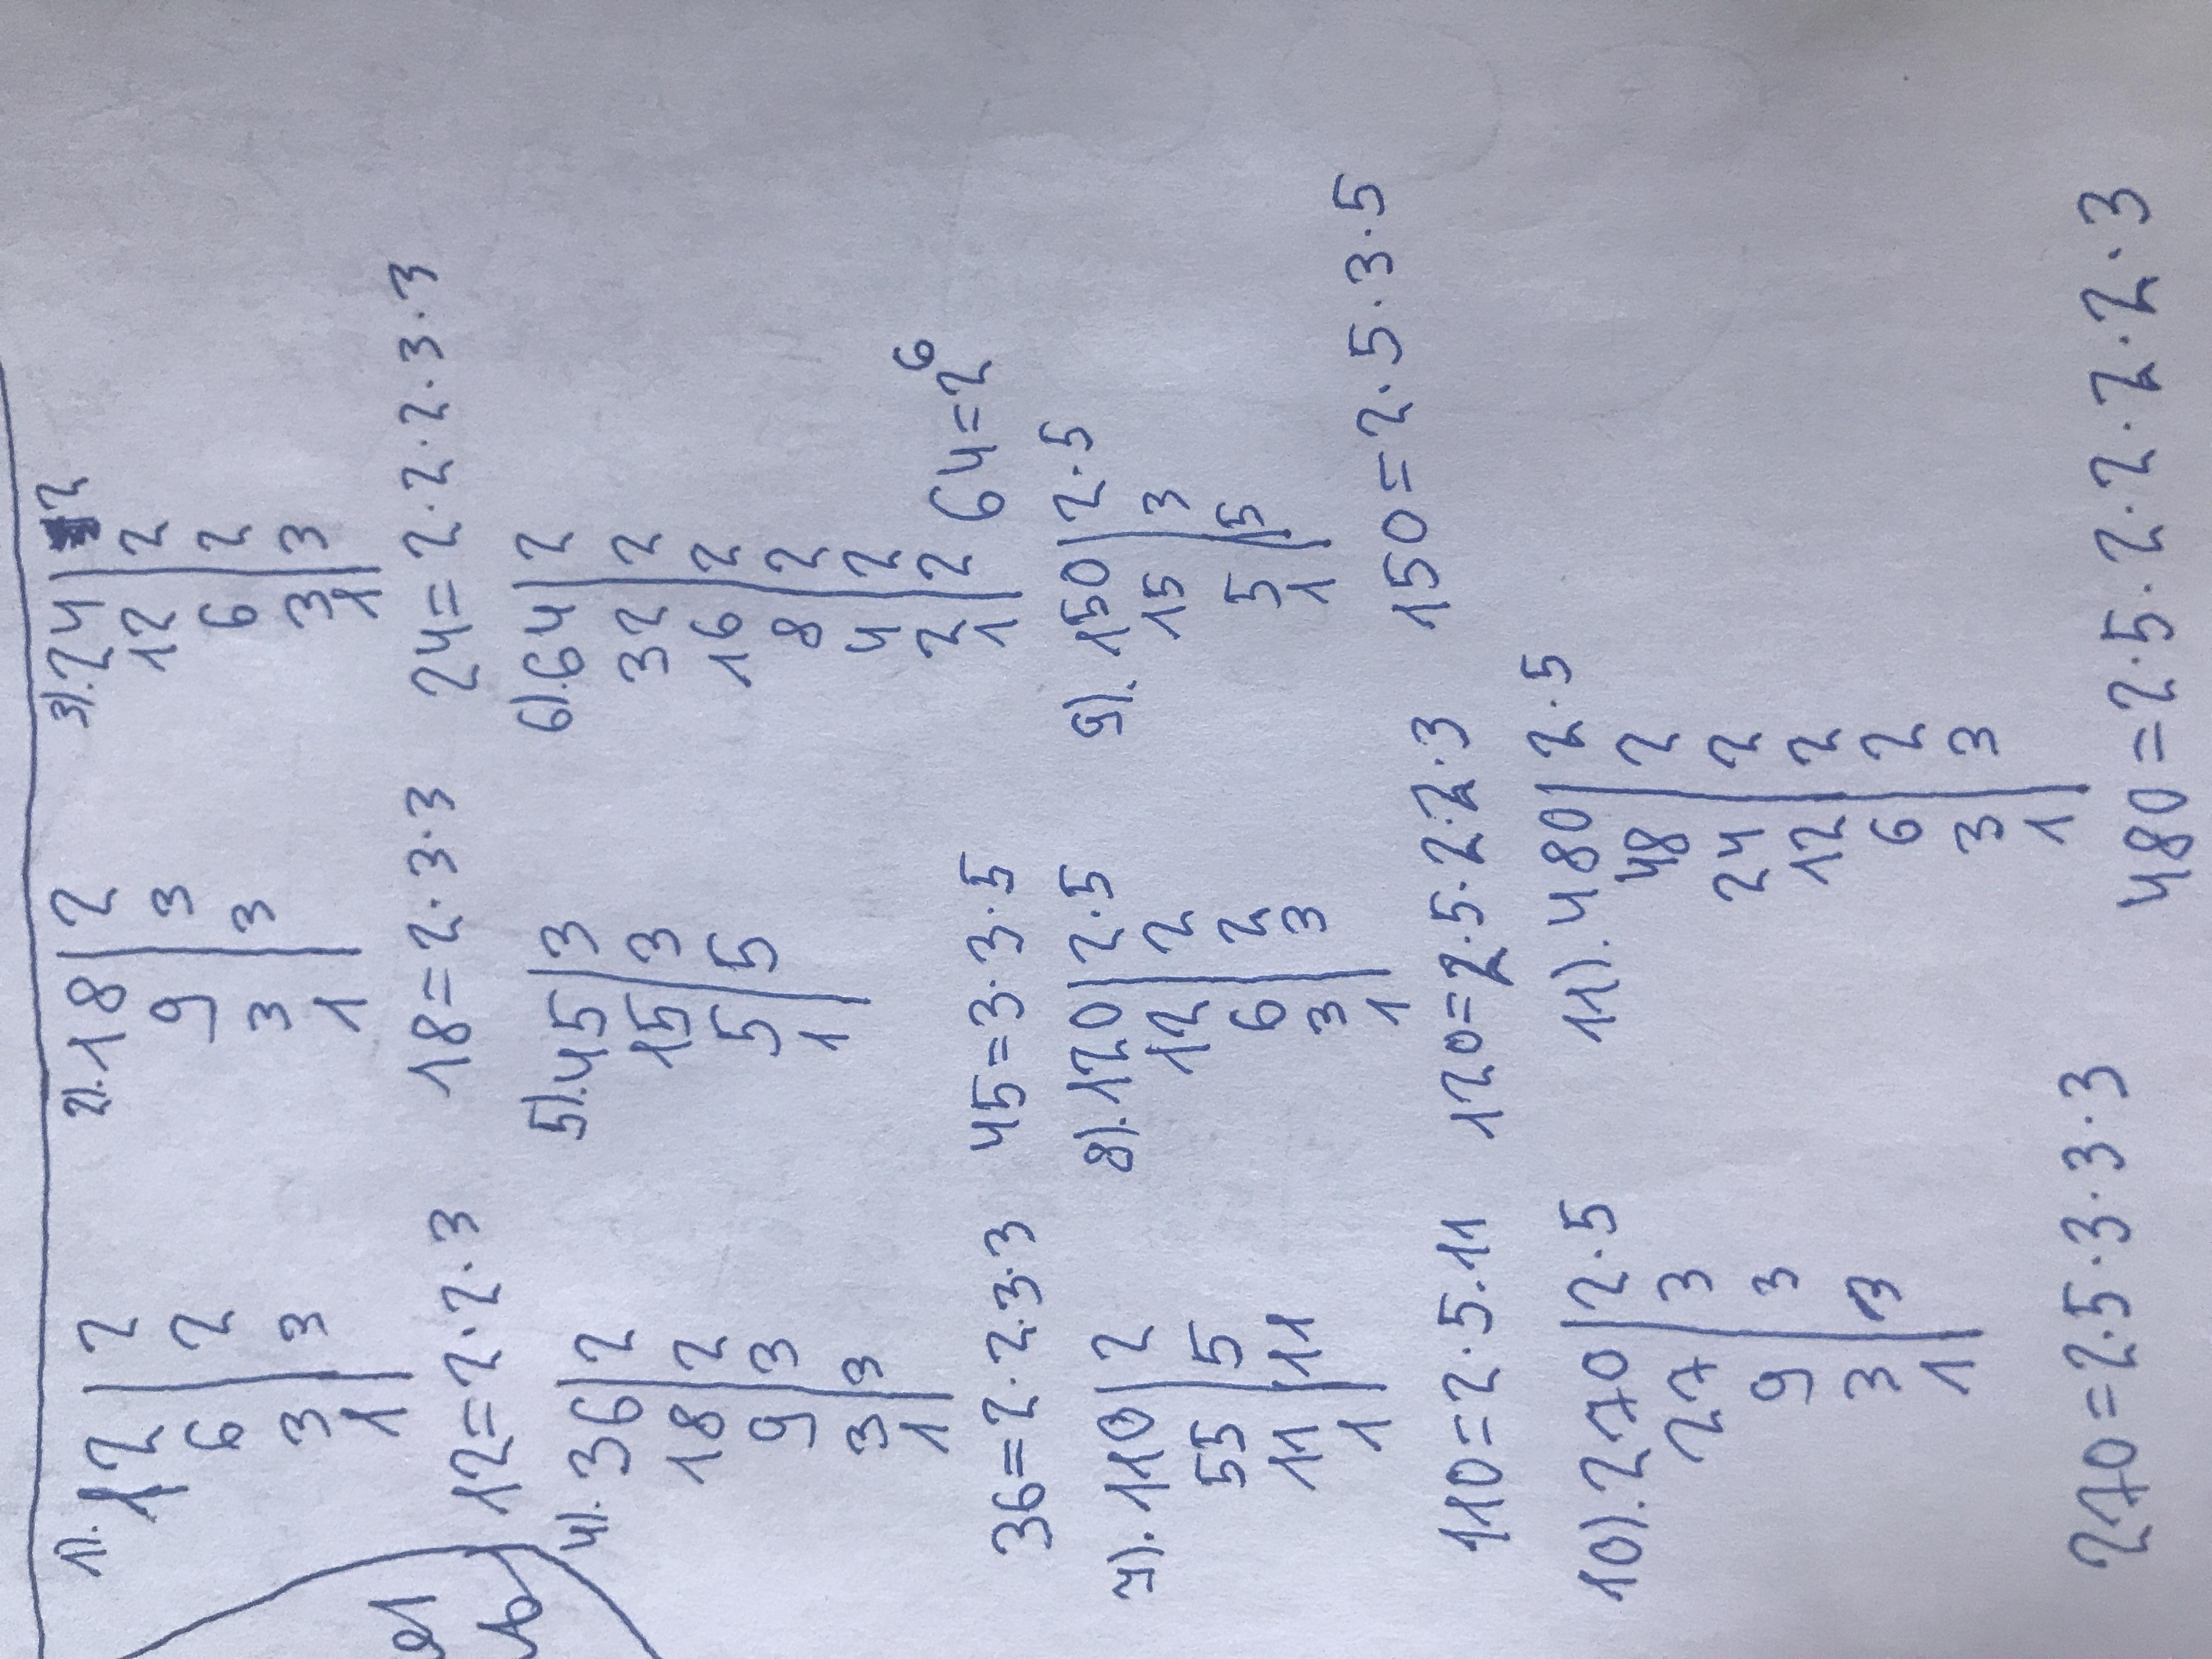 1). 12|2
6|2
3|3
1|
12=2·2·3
2). 18|2
9|3
3|3
1|
18=2·3·3
3). 24|2
12|2
6|2
3|3
1|
24=2·2·2·3·3
4). 36|2
18|2
9|3
3|3
1|
36=2·2·3·3
5). 45|3
15|3
5|5
1|
45=3·3·5
6). 64|2
32|2
16|2
8|2
4|2
2|2
1|
64=2⁶
7). 110|2
55|5
11|11
1|
110=2·5·11
8). 120|2·5
12|2
6|2
3|3
1|
120=2·5·2·2·3
9). 150|2·5
15|3
5|5
1|
150=2·5·3·5
10). 270|2·5
27|3
9|3
3|3
1|
270=2·5·3·3·3
11). 480|2·5
48|2
24|2
12|2
6|2
3|3
1|
480=2·5·2·2·2·2·3